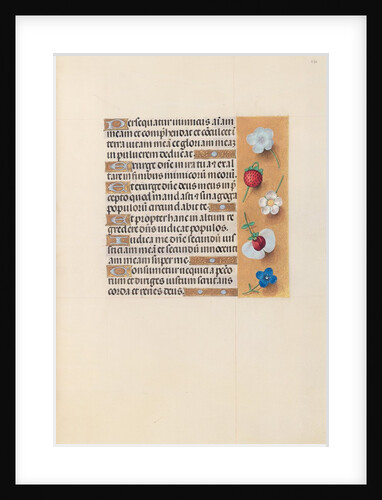 Persequatur inimicus aīam
meam et comphendat et cōculcet ī
terra vitam meā et gloriam meaʒ
in pulverem deducat
Exurge dñe in ira tua et exal
tare in finibus inimicorum meorū.
Et exurge dñe deus meus in p
cepto quod mandasti et sinagoga
populorū circundabit te
Et propter hanc in altum re
gredere dñs iudicat populos.
Iudica me dñe secundū ius
ticiam meā et secundū innocenti
am meam super me.
Consumetur nequicia pctō
rum et diriges iustum scrutans
corda et renes deus.